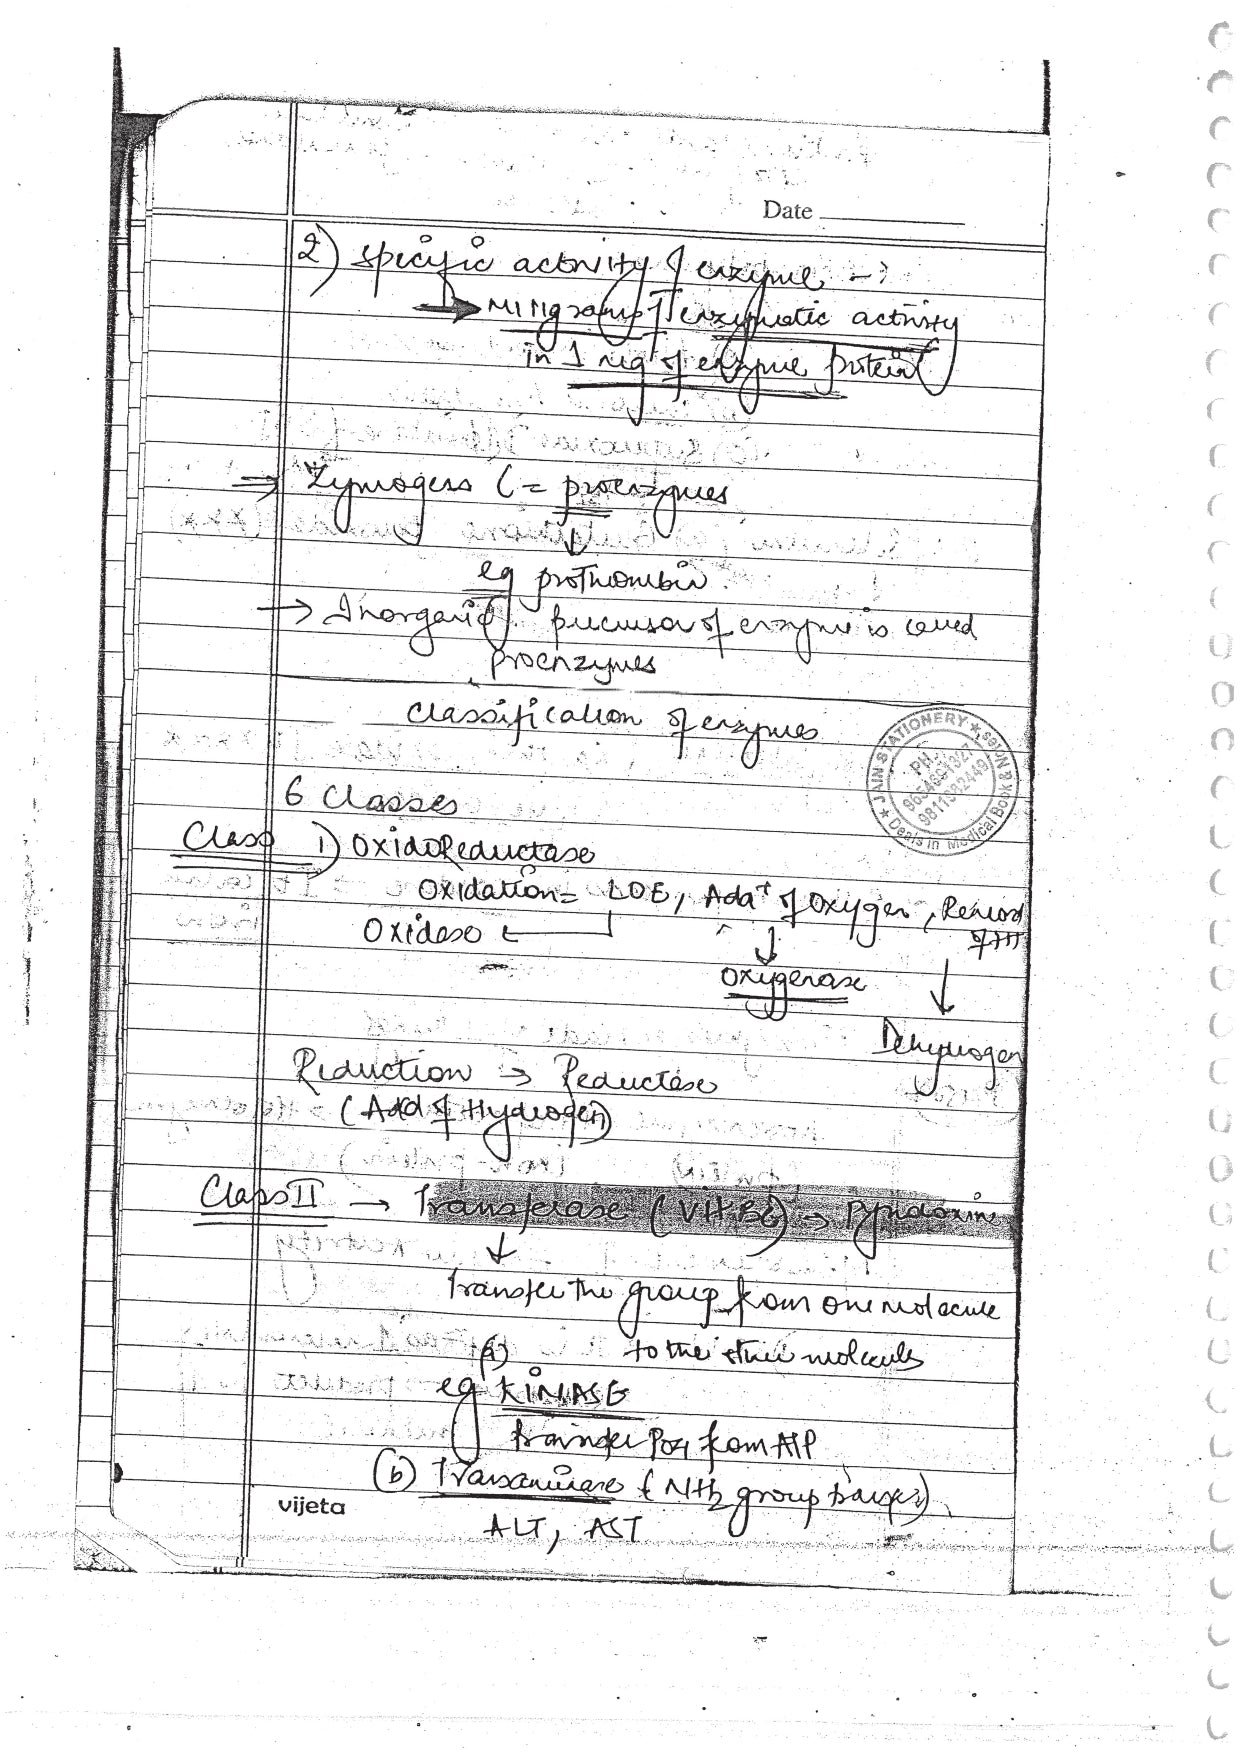 Date
2) specific activity of enzyme →
→ Milligrams of enzymatic activity
in 1 mg of enzyme protein
⇒ Zymogens (= proenzymes
↓
eg prothrombin.
→ Inorganic precursor of enzyme is called
proenzymes
Classification of enzymes
JAIN STATIONERY
PH.
9811382449
Deals in Medical Book & Notes
6 Classes
Class 1) OxidoReductase
Oxidation = LOE, Addn of Oxygen, Removal
of H
Oxidase ←
↓
Oxygenase
↓
Dehydrogen
Reduction → Reductase
(Add of Hydrogen)
Class II → Transferase (Vit B6) → Pyridoxine
↓
Transfer the group from one molecule
to the other molecules
(a)
eg KINASE
transfer PO4 from ATP
(b) Transaminase (NH2 group transfer)
vijeta
ALT, AST